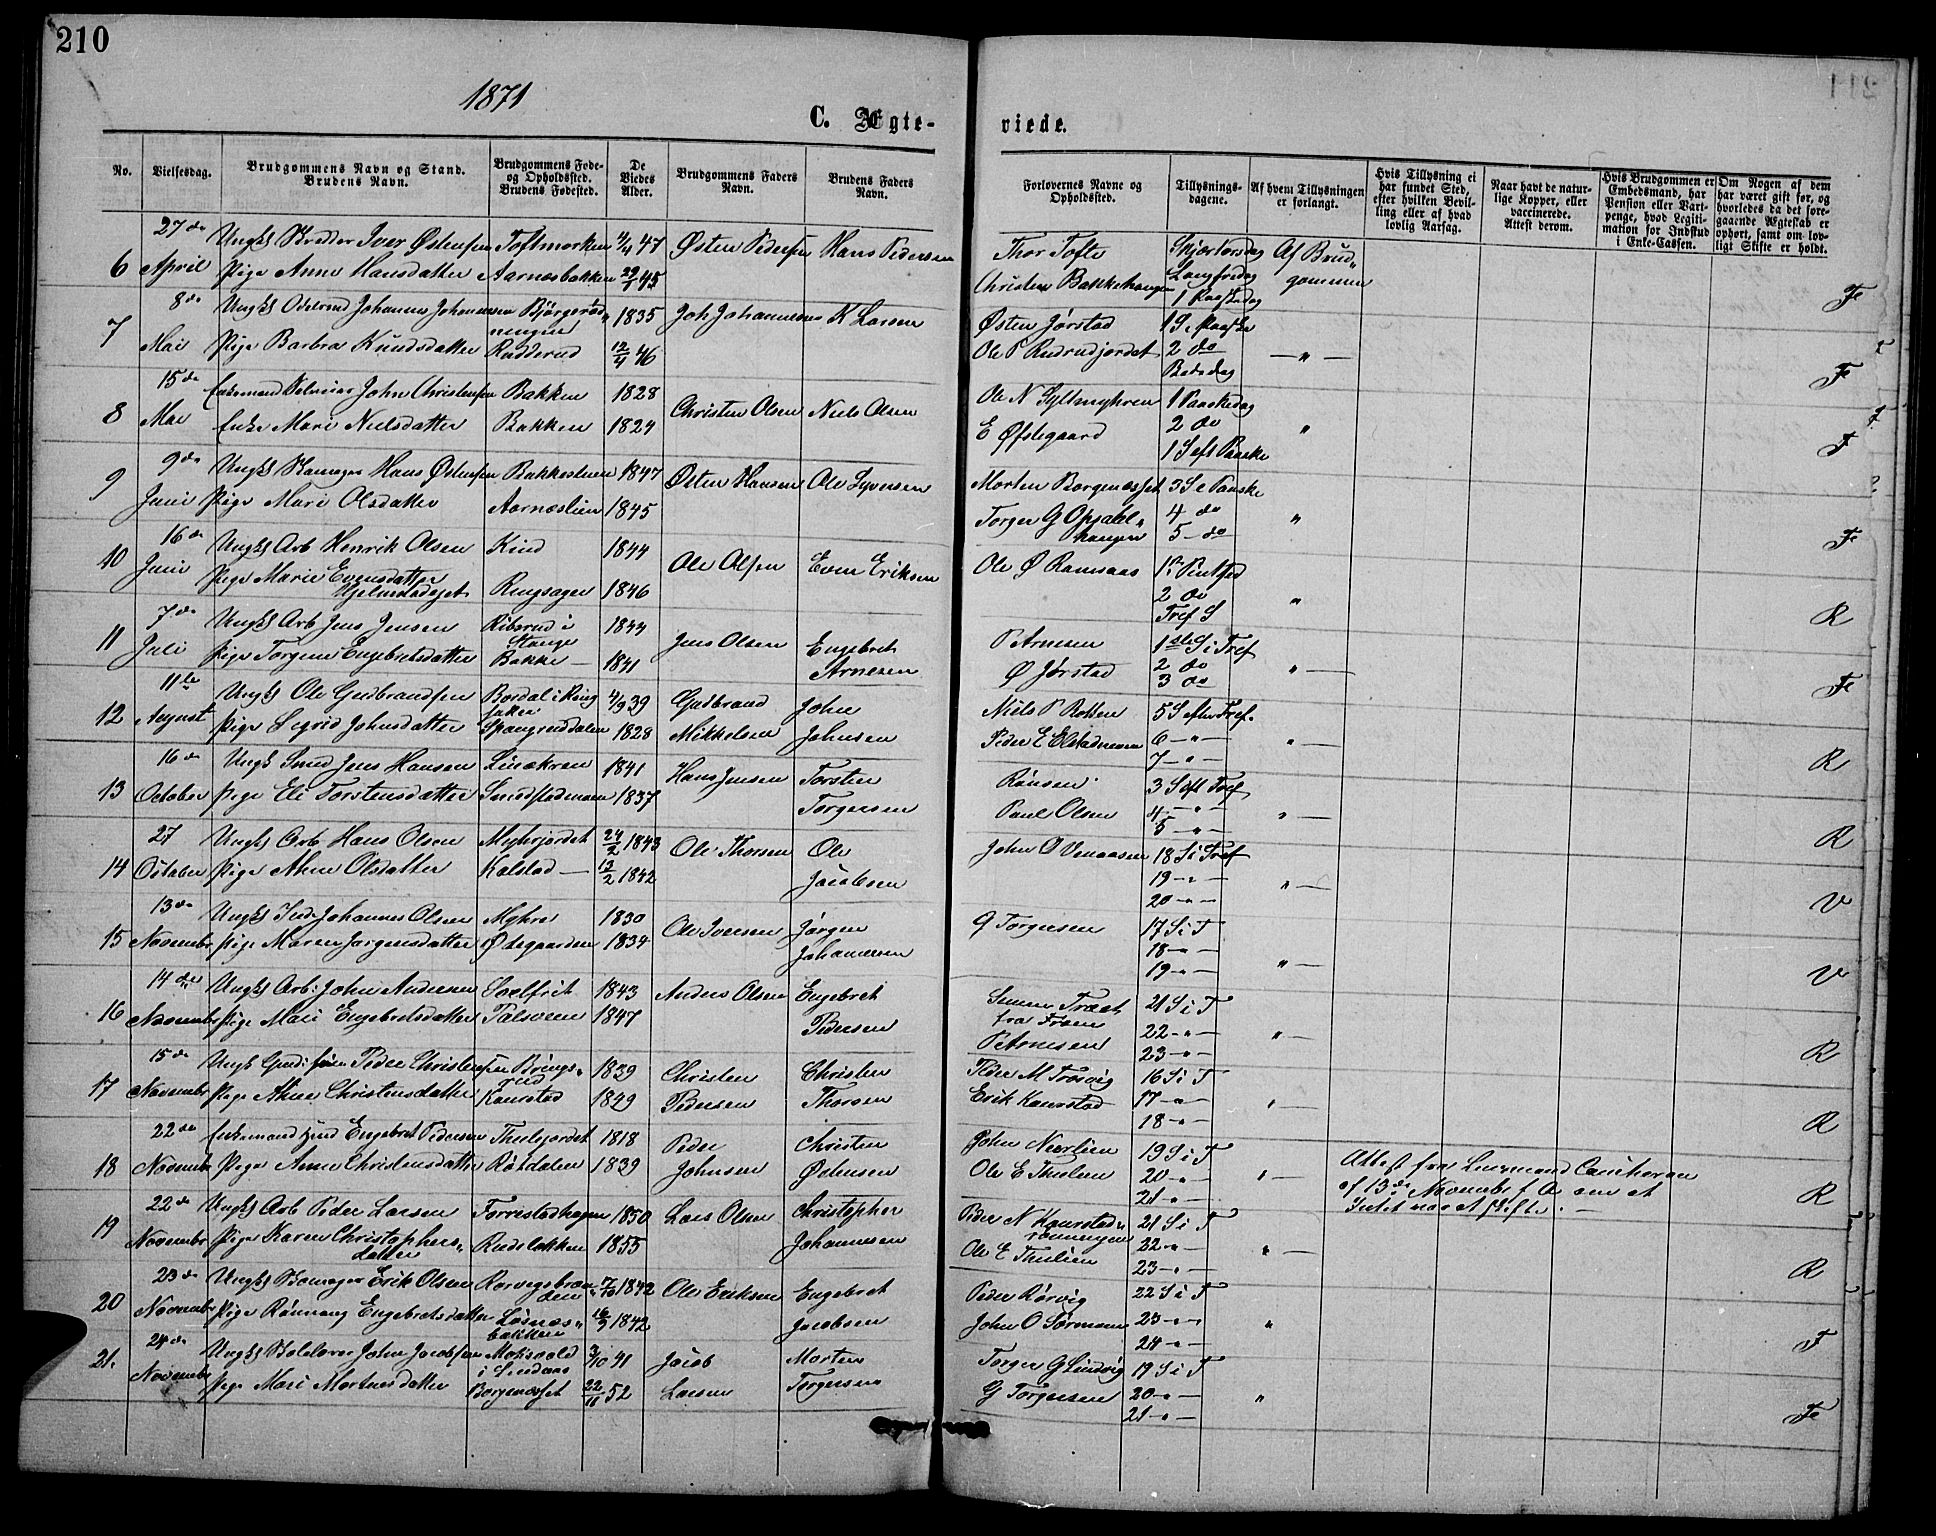 210
1871
C. Ægte-
viede.
No.
Vielsesdag.
Brudgommens Navn og Stand.
Brudens Navn.
Brudgommens Føde-
og Opholdssted.
Brudens Fødested.
De
Viedes
Alder.
Brudgommens Faders
Navn.
Brudens Faders
Navn.
Forlovernes Navne og
Opholdssted.
Tillysnings-
dagene.
Af hvem Tillysningen
er forlangt.
Hvis Tillysning ei
har fundet Sted,
efter hvilken Bevil-
ling eller af hvad
lovlig Aarsag.
Naar havt de natur-
lige Kopper, eller
vaccinerede.
Attest derom.
Hvis Brudgommen er
Embedsmand, har
Pension eller Vart-
penge, hvad Legiti-
mation for Indskud
i Enke-Cassen.
Om Nogen af dem
har været gift før, og
hvorledes da det fore-
gaaende Ægteskab er
ophørt, samt om lov-
ligt Skifte er holdt.
6 27de April
Ungk Iver Østensen Toftmorken 4/4 47 Østen Pedersen Hans Pedersen
Pige Anne Hansdatter Aarnæsbakken 29/1 45
Thor Tofte Skjærtorsdag Af Brud-
Christen Bakkehaugen Langfredag gommen
1 Paaskedag Fe
7 8de Mai
Ungk Johannes Johannesen Bjørgerød-
ningen 1835 Joh Johannesen K Larsen
Pige Barbra Knudsdatter Rudderud 12/4 46
Østen Jørstad 1 S e Paaske
Ole P Rudrudjordet 2 do — " —
Bededag Fe
8 15de Mai
Enkemand John Christensen Bakken 1828 Christen Olsen Niels Olsen
Enke Mari Nielsdatter Bakken 1824
Ole N Syltmyhren 1 Paaskedag
E Øfstegaard 2 do "
1 S eft Paaske F
9 9de Juni
Ungk Hans Østensen Bakkestuen 1847 Østen Hansen Ole Syversen
Pige Mari Olsdatter Aarnæslien 1845
Morten Borgenæsset 3 S e Paaske
Torger G Opsahl-
haugen 4 do "
5 - do Fe
10 16de Juni
Ungk Arb Henrik Olsen Kind 1844 Ole Olsen Even Eriksen
Pige Marie Evensdatter
Hjelmstadejet Ringsager 1846
Ole Ø Ramsaas 1 Pintsed
2 do "
Tref S R
11 7de Juli
Ungk Arb Jens Jensen Riberud i
Stange 1844 Jens Olsen Engebret
Arnesen
Pige Torgine Engebretsdatter Bakke — 1841
P Arnesen 1ste S i Tref
Ø Jørstad 2 do " —
3 do Fe
12 11te August
Ungk Ole Gudbrandsen Bordal i Ring
saker 4/9 39 Gudbrand
Mikkelsen John
Johnsen
Pige Sigrid Johnsdatter Spangruddalen 1828
Niels P Rotten 5 S efter Tref.
Peder E Elstadmoen 6 — " — " —
7 — " — R
13 16de October
Ungk Smed Jens Hansen Linækren 1841 Hans Jensen Torsten
Torgersen
Pige Eli Torstensdatter Smedstadmoen 1837
Rønsen 3 S eft Tref
Paul Olsen 4 — " — " —
5 — " — R
14 27 October
Ungk Arb Hans Olsen Myhrjordet 24/2 1843 Ole Thorsen Ole
Jacobsen
Pige Ahne Olsdatter Kolstad — 12/2 1842
John O Venaasen 18 S i Tref
19 — " — " —
20 — " — V
15 13de Novembr
Ungk Ind. Johannes Olsen Myhre 1830 Ole Iversen Jørgen
Johannesen
Pige Maren Jørgensdatter Ødegaarden 1834
G Torgersen 17 S i T
18 — " — " —
19 — " — V
16 14de Novembr
Ungk Arb: John Andersen Soelfrit 1843 Anders Olsen Engebret
Pedersen
Pige Mari Engebretsdatter Pålsveen 1847
Simen Træet
fra Froen 21 S i T
P Arnesen 22 — " — " —
23 — " — R
17 15de Novembr
Ungk Peder Christensen Brings-
rud 1839 Christen
Pedersen Christen
Thorsen
Pige Ahne Christensdatter Kanstad 1849
Peder M Trosvig 16 S i T
Erik Kanrstad 17 — " — " —
18 — " — R
18 22de Novembr
Enkemand Engebret Pedersen Thulejordet 1818 Peder
Johnsen Christen
Ødensen
Pige Anne Christensdatter Rotdalen 1839
John Neerlien 19 S i T
Ole E Thulien 20 — " — " —
21 — " —
Attest fra Lensmand
af 13de Novembr om at
Intet var at skifte. — R
19 22de Novembr
Ungk Arb Peder Larsen Forrestadhagen 1850 Lars Olsen Christopher
Johannesen
Pige Karen Christophers-
datter Rudsløkken 1855
Peder N Kanrstad-
rønningen 21 S i T
Ole E Thulien 22 — " — " —
23 — " — R
20 23de Novembr
Ungk Erik Olsen Rorvigsbræn-
den 7/10 1842 Ole Eriksen Engebret
Jacobsen
Pige Rønnaug Engebretsdatter Losnæs-
bakken 16/9 1842
Peder Rørvig 22 S i T
John O Sørmoen 23 — " — "
24 — " — F
21. 24de Novembr
Ungk John Jacobsen Moksvold
i Sindaas 3/10 41 Jacob
Larsen Morten
Torgersen
Pige Mari Mortensdatter Borgenæsset 22/11 52
Torger G Lundvig 19 S i T
G Torgersen 20 — " — "
21 — " — Fe